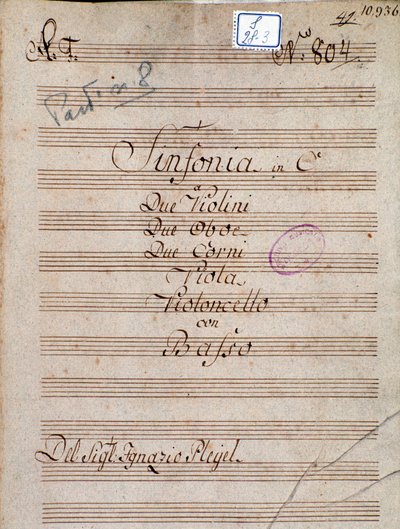 42. 10,936
S
28.3
A. T. Nro 804
Part. in 8
Sinfonia in C
a
Due Violini
Due Oboe
Due Corni
Viola
Violoncello
con
Basso
Del Sigl: Ignazio Pleÿel